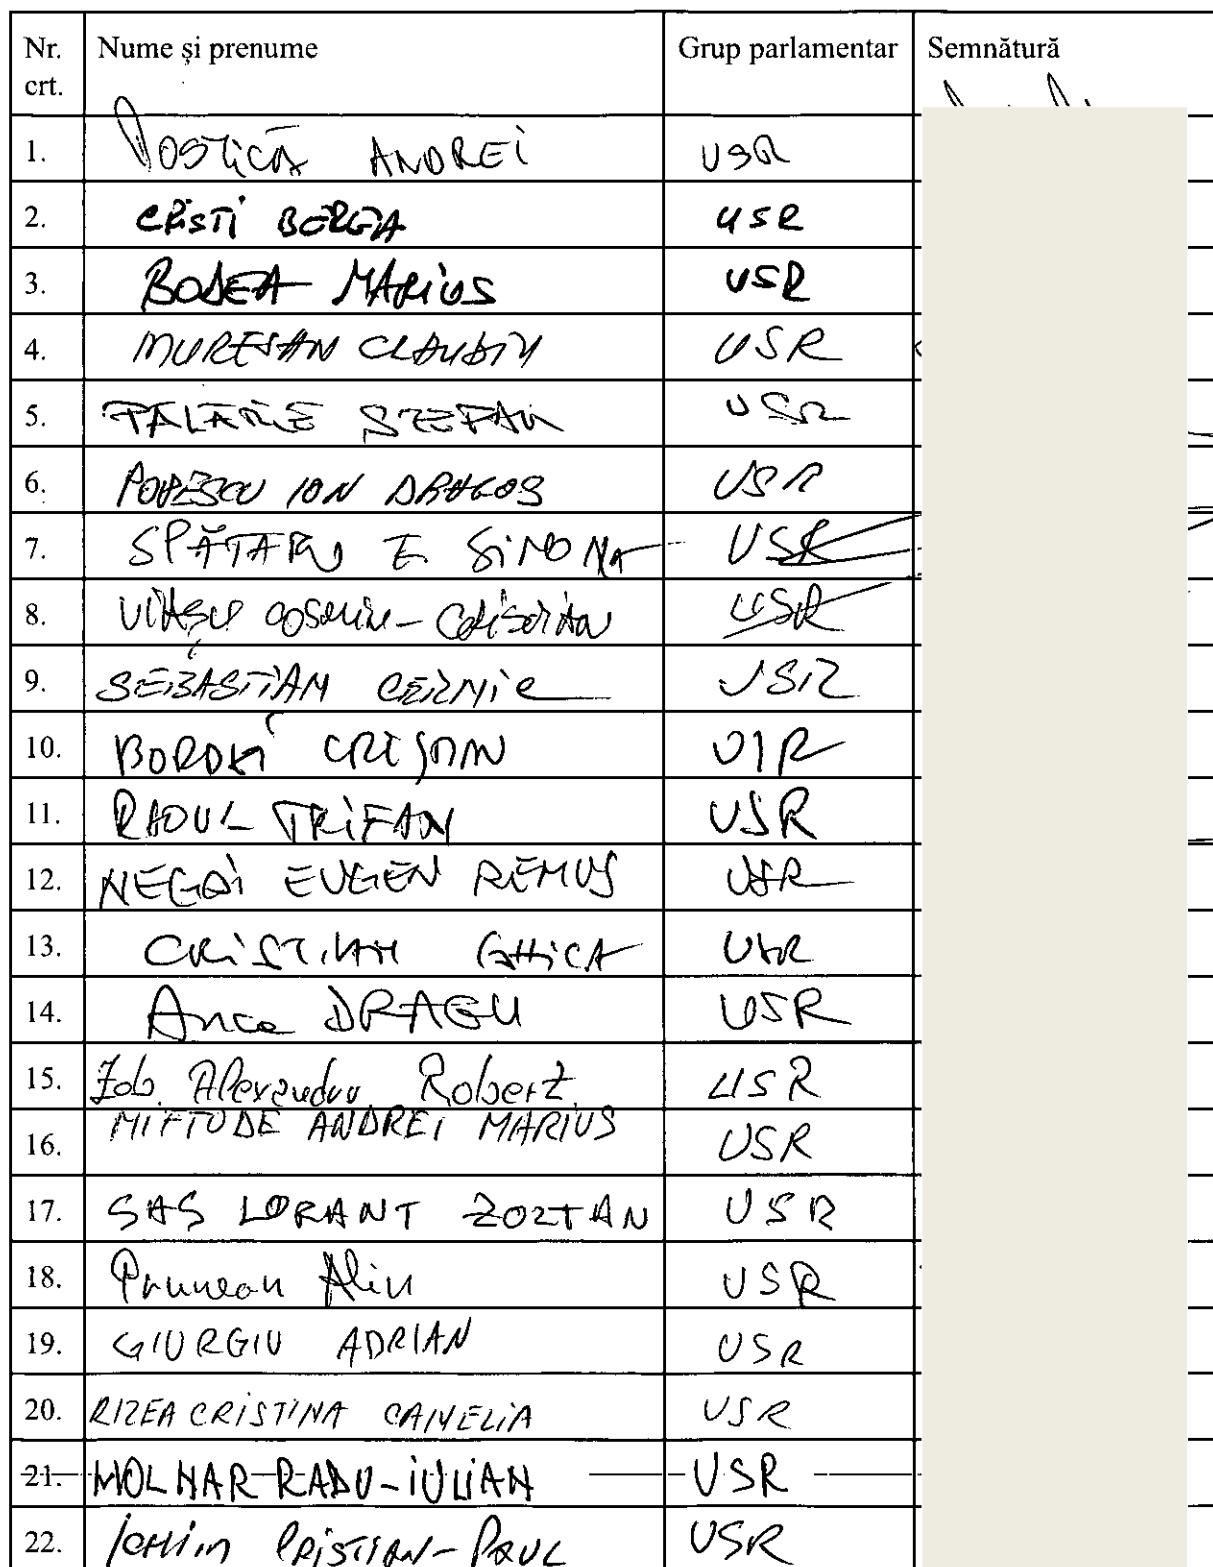 Nr. crt. Nume și prenume Grup parlamentar Semnătură
1. POSTICĂ ANDREI USR
2. CRISTI BERGA USR
3. BODEA MARIUS USR
4. MURESAN CLAUDIU USR
5. PALARIE STEFAN USR
6. POPESCU ION DRAGOS USR
7. SPĂTARU E SIMONA USR
8. USR
9. SEBASTIAN CERNIC USR
10. BORDEI CRISTIAN USR
11. RAOUL TRIFAN USR
12. NEGOI EUGEN REMUS USR
13. CRISTIAN GHICA USR
14. Anca DRAGU USR
15. Zob Alexandru Robert USR
16. MIFTODE ANDREI MARIUS USR
17. SAS LORANT ZOLTAN USR
18. Prunean Alin USR
19. GIURGIU ADRIAN USR
20. RIZEA CRISTINA CAMELIA USR
21. MOLNAR-RADU-IULIAN USR
22. ICHIM CRISTIAN-PAUL USR